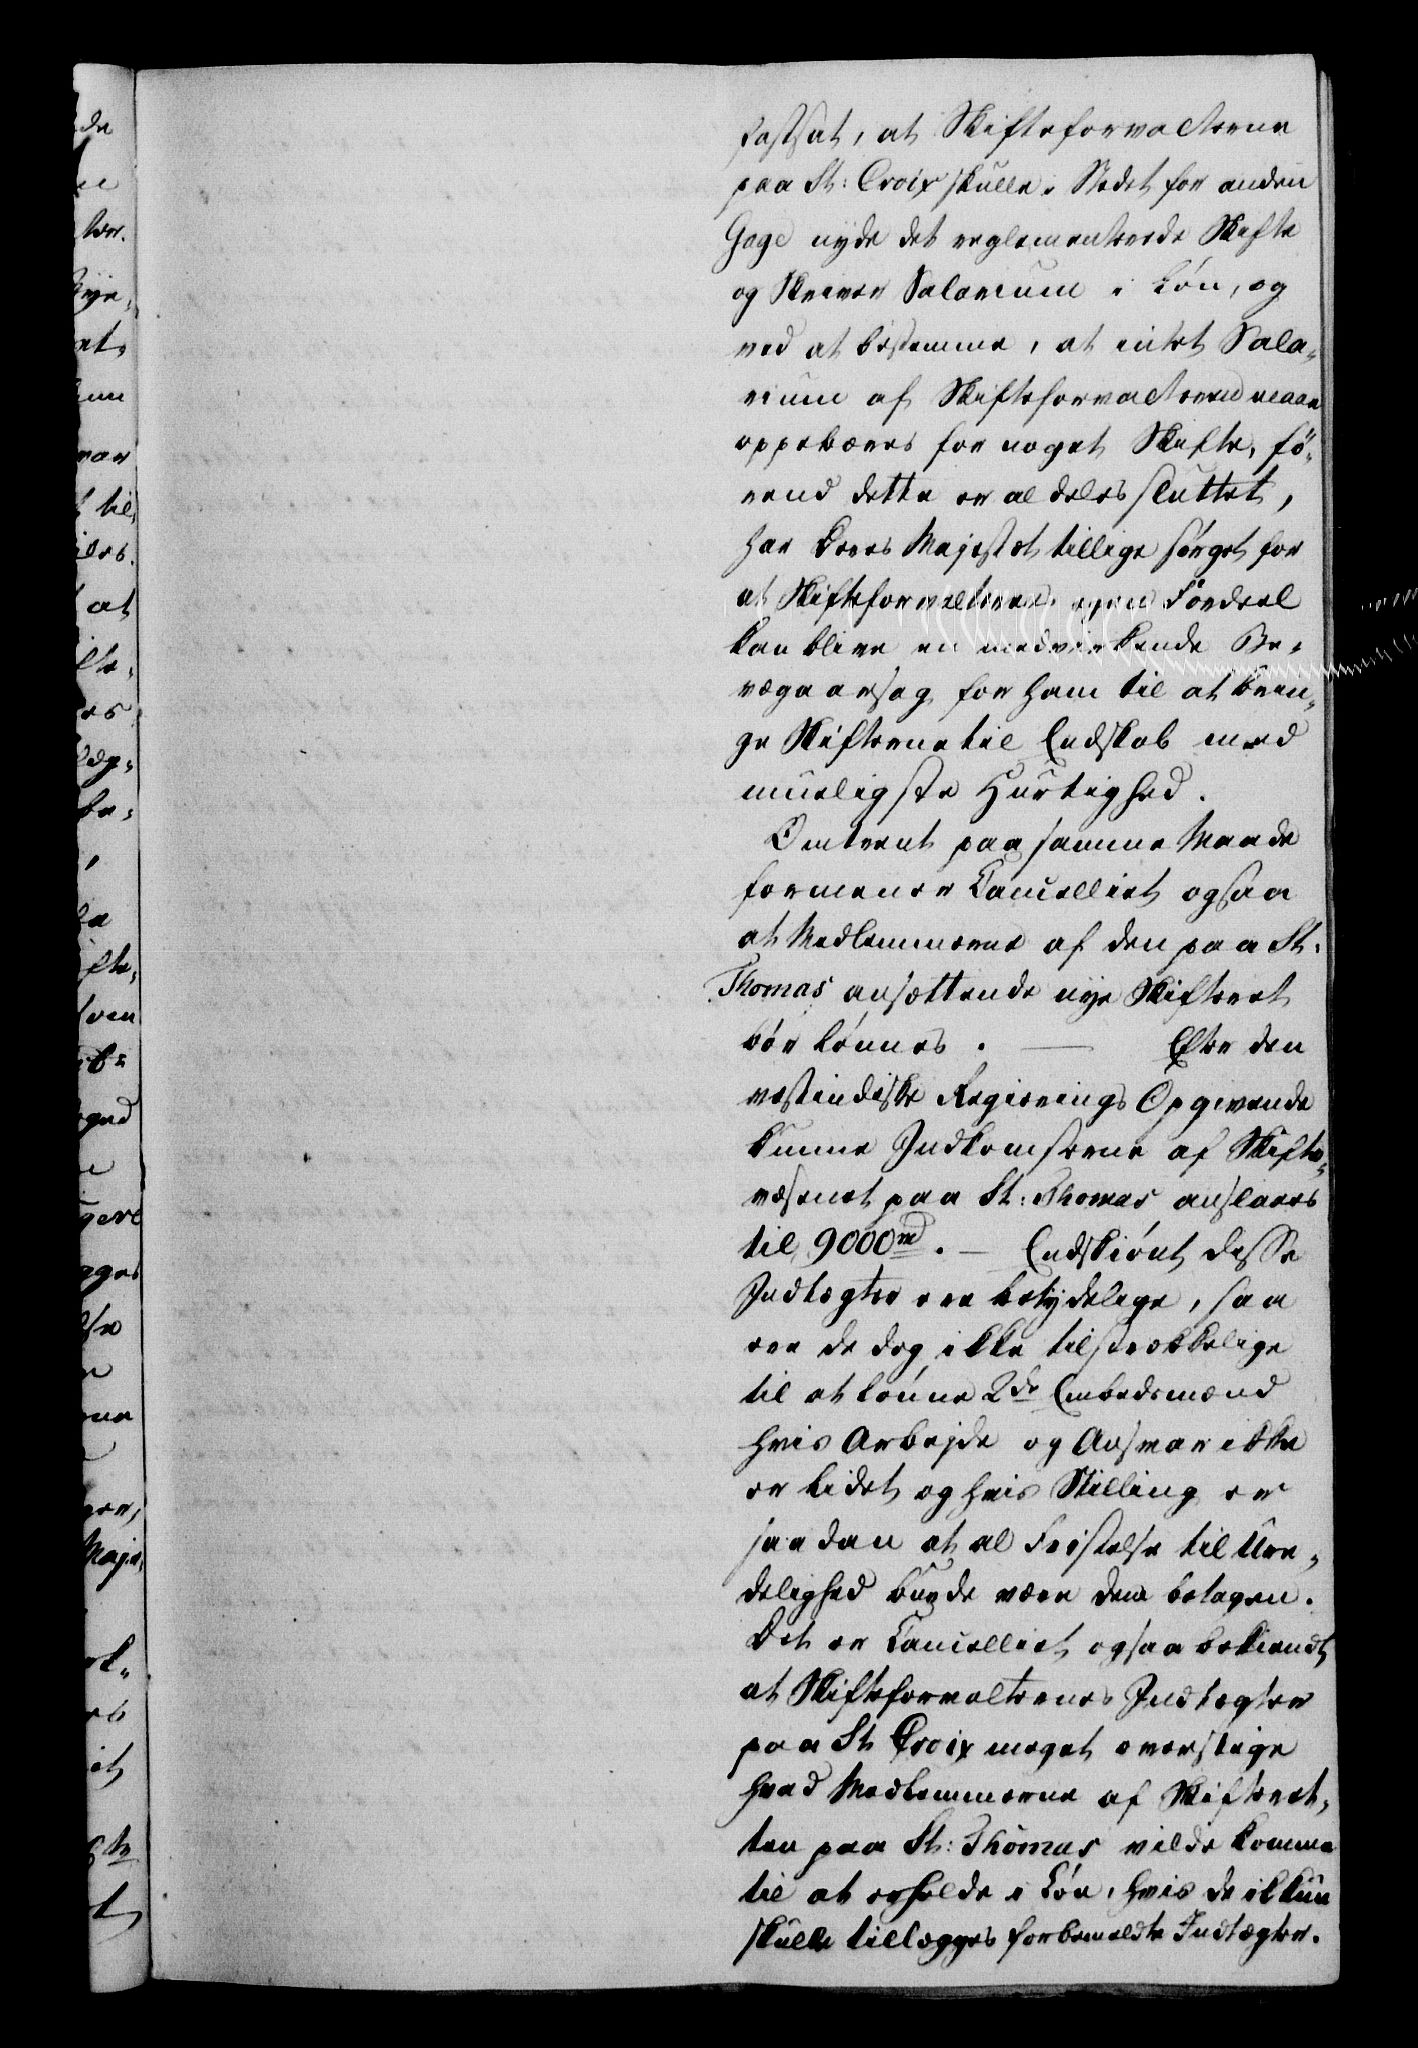 fastsat, at Skifteforvalterne
paa St: Croix skulle i Stedet for anden
Gage nyde det reglementerede Skifte
og Skriver Salarium i Løn, og
ved at bestemme, at intet Sala-
rium af Skifteforvalteren maae
oppebæres for noget Skifte, fö-
rend dette er aldeles sluttet,
har Deres Majestæt tillige sørget for
at Skifteforvalterens egen Fordeel
kan blive en medvirkende Be-
vægaarsag for ham til at brin-
ge Skifterne til Endskab med
mueligste Hurtighed.
Omtrent paa samme Maade
formener Cancelliet ogsaa
at Medlemmerne af den paa St.
Thomas ansættende nye Skifteret
bør lønnes. — Efter den
vestindiske Regierings Opgivende
kunne Indkomsterne af Skifte-
væsenet paa St: Thomas anslaaes
til 9000 rd. — Endskiønt disse
Indtægter ere betydelige, saa
ere de dog ikke tilstrækkelige
til at lønne 2de Embedsmænd
hvis Arbejde og Ansvar ikke
er lidet og hvis Stilling er
saadan at al Fristelse til Ure-
delighed burde være dem betagen.
Det er Cancelliet ogsaa bekiendt
at Skifteforvalternes Indtægter
paa St Croix meget overstige
hvad Medlemmerne af Skifteret-
ten paa St: Thomas vilde komme
til at erholde i Løn, hvis de ikkun
skulle tillægges forbemeldte Indtægter.